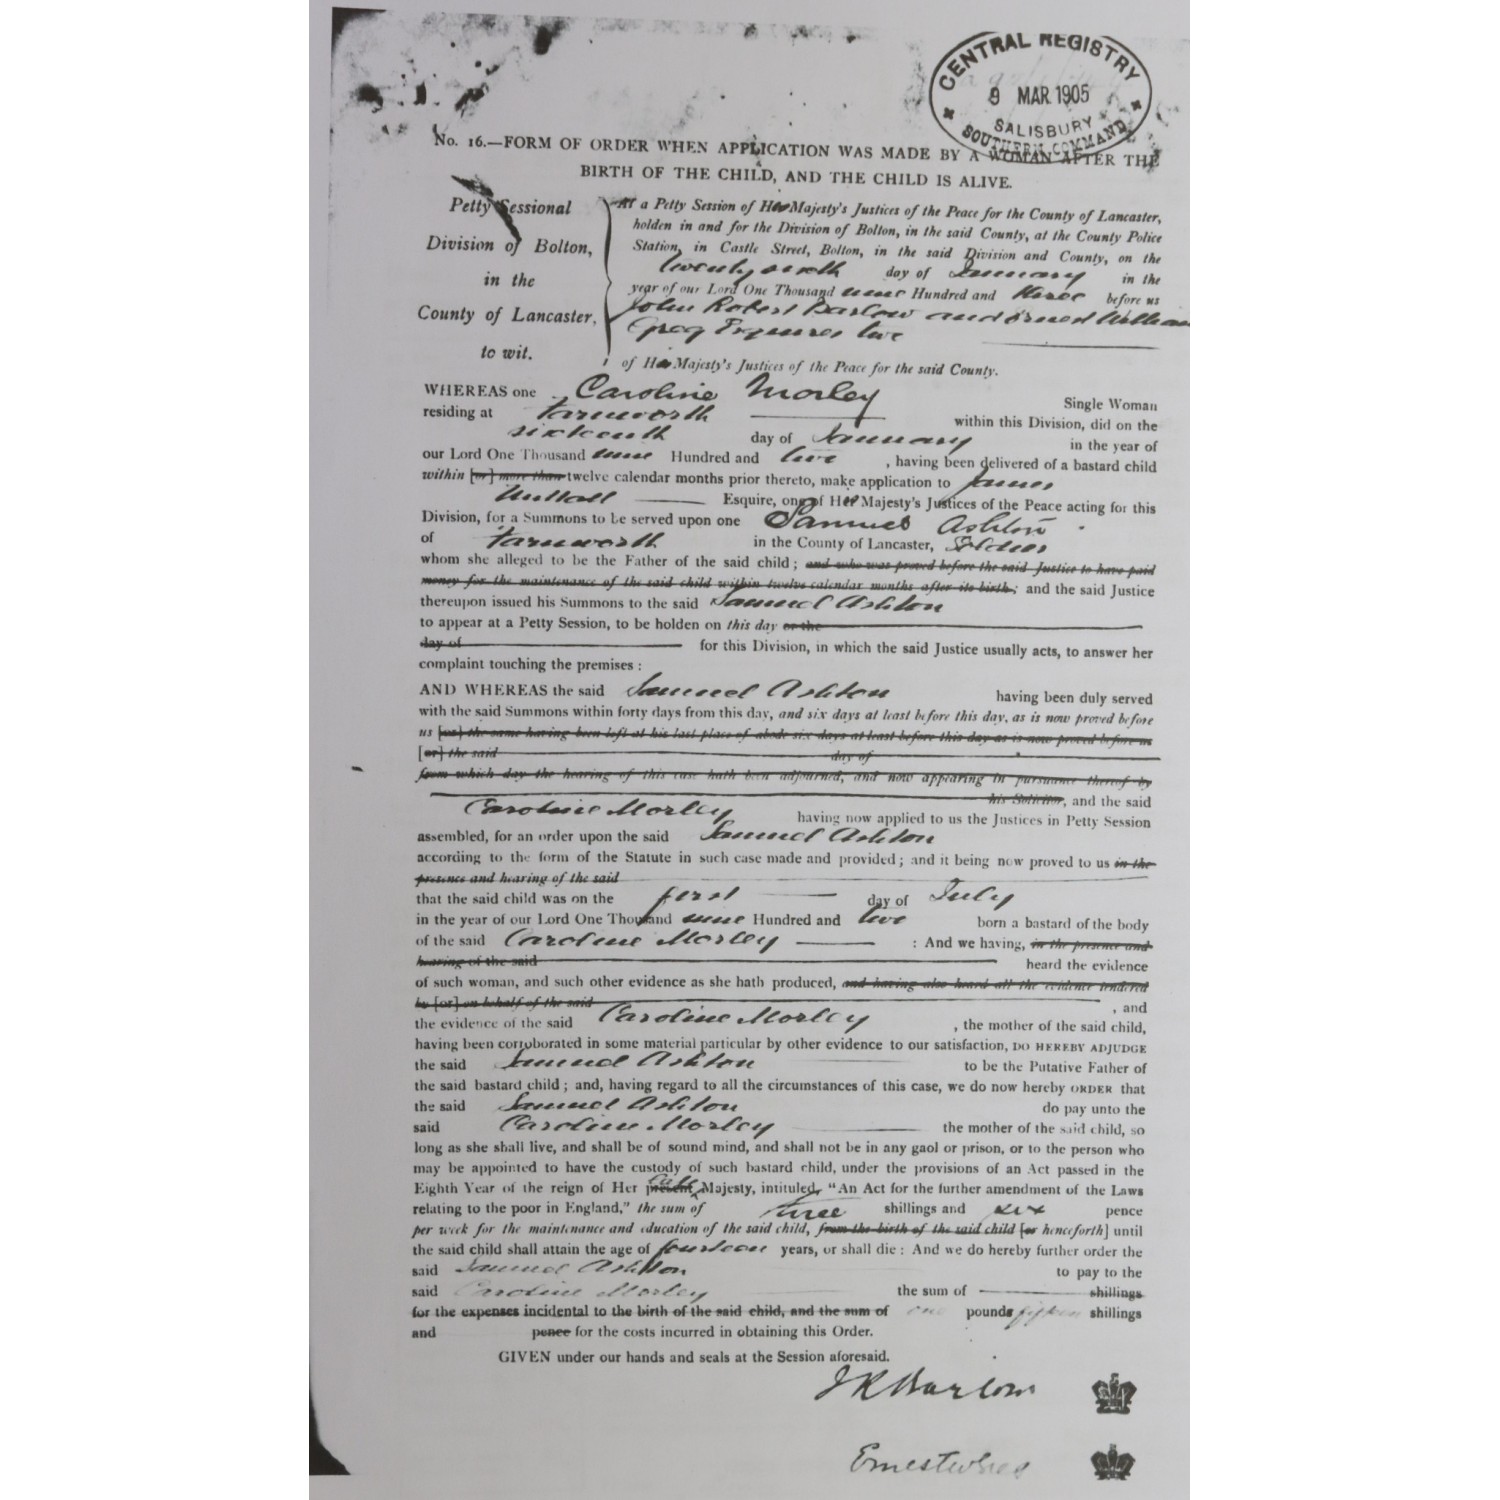 CENTRAL REGISTRY
9 MAR 1905
SALISBURY
SOUTHERN COMMAND
No. 16.—FORM OF ORDER WHEN APPLICATION WAS MADE BY A WOMAN AFTER THE
BIRTH OF THE CHILD, AND THE CHILD IS ALIVE.
Petty Sessional
Division of Bolton,
in the
County of Lancaster,
to wit.
At a Petty Session of His Majesty's Justices of the Peace for the County of Lancaster,
holden in and for the Division of Bolton, in the said County, at the County Police
Station, in Castle Street, Bolton, in the said Division and County, on the
twenty sixth day of January in the
year of our Lord One Thousand nine Hundred and three before us
John Robert Barlow and Ernest William
Greg Esquires two
of His Majesty's Justices of the Peace for the said County.
WHEREAS one Caroline Morley Single Woman
residing at Farnworth within this Division, did on the
sixteenth day of January in the year of
our Lord One Thousand nine Hundred and , having been delivered of a bastard child
within [or] more than twelve calendar months prior thereto, make application to James
Nuttall Esquire, one of His Majesty's Justices of the Peace acting for this
Division, for a Summons to be served upon one Samuel Ashton
of Farnworth in the County of Lancaster, Soldier
whom she alleged to be the Father of the said child; and who was proved before the said Justice to have paid
money for the maintenance of the said child within twelve calendar months after its birth; and the said Justice
thereupon issued his Summons to the said Samuel Ashton
to appear at a Petty Session, to be holden on this day or the
day of for this Division, in which the said Justice usually acts, to answer her
complaint touching the premises:
AND WHEREAS the said Samuel Ashton having been duly served
with the said Summons within forty days from this day, and six days at least before this day, as is now proved before
us [or] the same having been left at his last place of abode six days at least before this day as is now proved before us
[or] the said day of
from which day the hearing of this case hath been adjourned, and now appearing in pursuance thereof by
his Solicitor, and the said
Caroline Morley having now applied to us the Justices in Petty Session
assembled, for an order upon the said Samuel Ashton
according to the form of the Statute in such case made and provided; and it being now proved to us in the
presence and hearing of the said
that the said child was on the first day of July
in the year of our Lord One Thousand nine Hundred and two born a bastard of the body
of the said Caroline Morley : And we having, in the presence and
hearing of the said heard the evidence
of such woman, and such other evidence as she hath produced, and having also heard all the evidence tendered
by [or] on behalf of the said , and
the evidence of the said Caroline Morley , the mother of the said child,
having been corroborated in some material particular by other evidence to our satisfaction, DO HEREBY ADJUDGE
the said Samuel Ashton to be the Putative Father of
the said bastard child; and, having regard to all the circumstances of this case, we do now hereby ORDER that
the said Samuel Ashton do pay unto the
said Caroline Morley the mother of the said child, so
long as she shall live, and shall be of sound mind, and shall not be in any gaol or prison, or to the person who
may be appointed to have the custody of such bastard child, under the provisions of an Act passed in the
Eighth Year of the reign of Her present late Majesty, intituled, "An Act for the further amendment of the Laws
relating to the poor in England," the sum of three shillings and six pence
per week for the maintenance and education of the said child, from the birth of the said child [or henceforth] until
the said child shall attain the age of fourteen years, or shall die: And we do hereby further order the
said Samuel Ashton to pay to the
said Caroline Morley the sum of shillings
for the expenses incidental to the birth of the said child, and the sum of one pounds fifteen shillings
and pence for the costs incurred in obtaining this Order.
GIVEN under our hands and seals at the Session aforesaid.
J R Barlow
Ernest W Greg